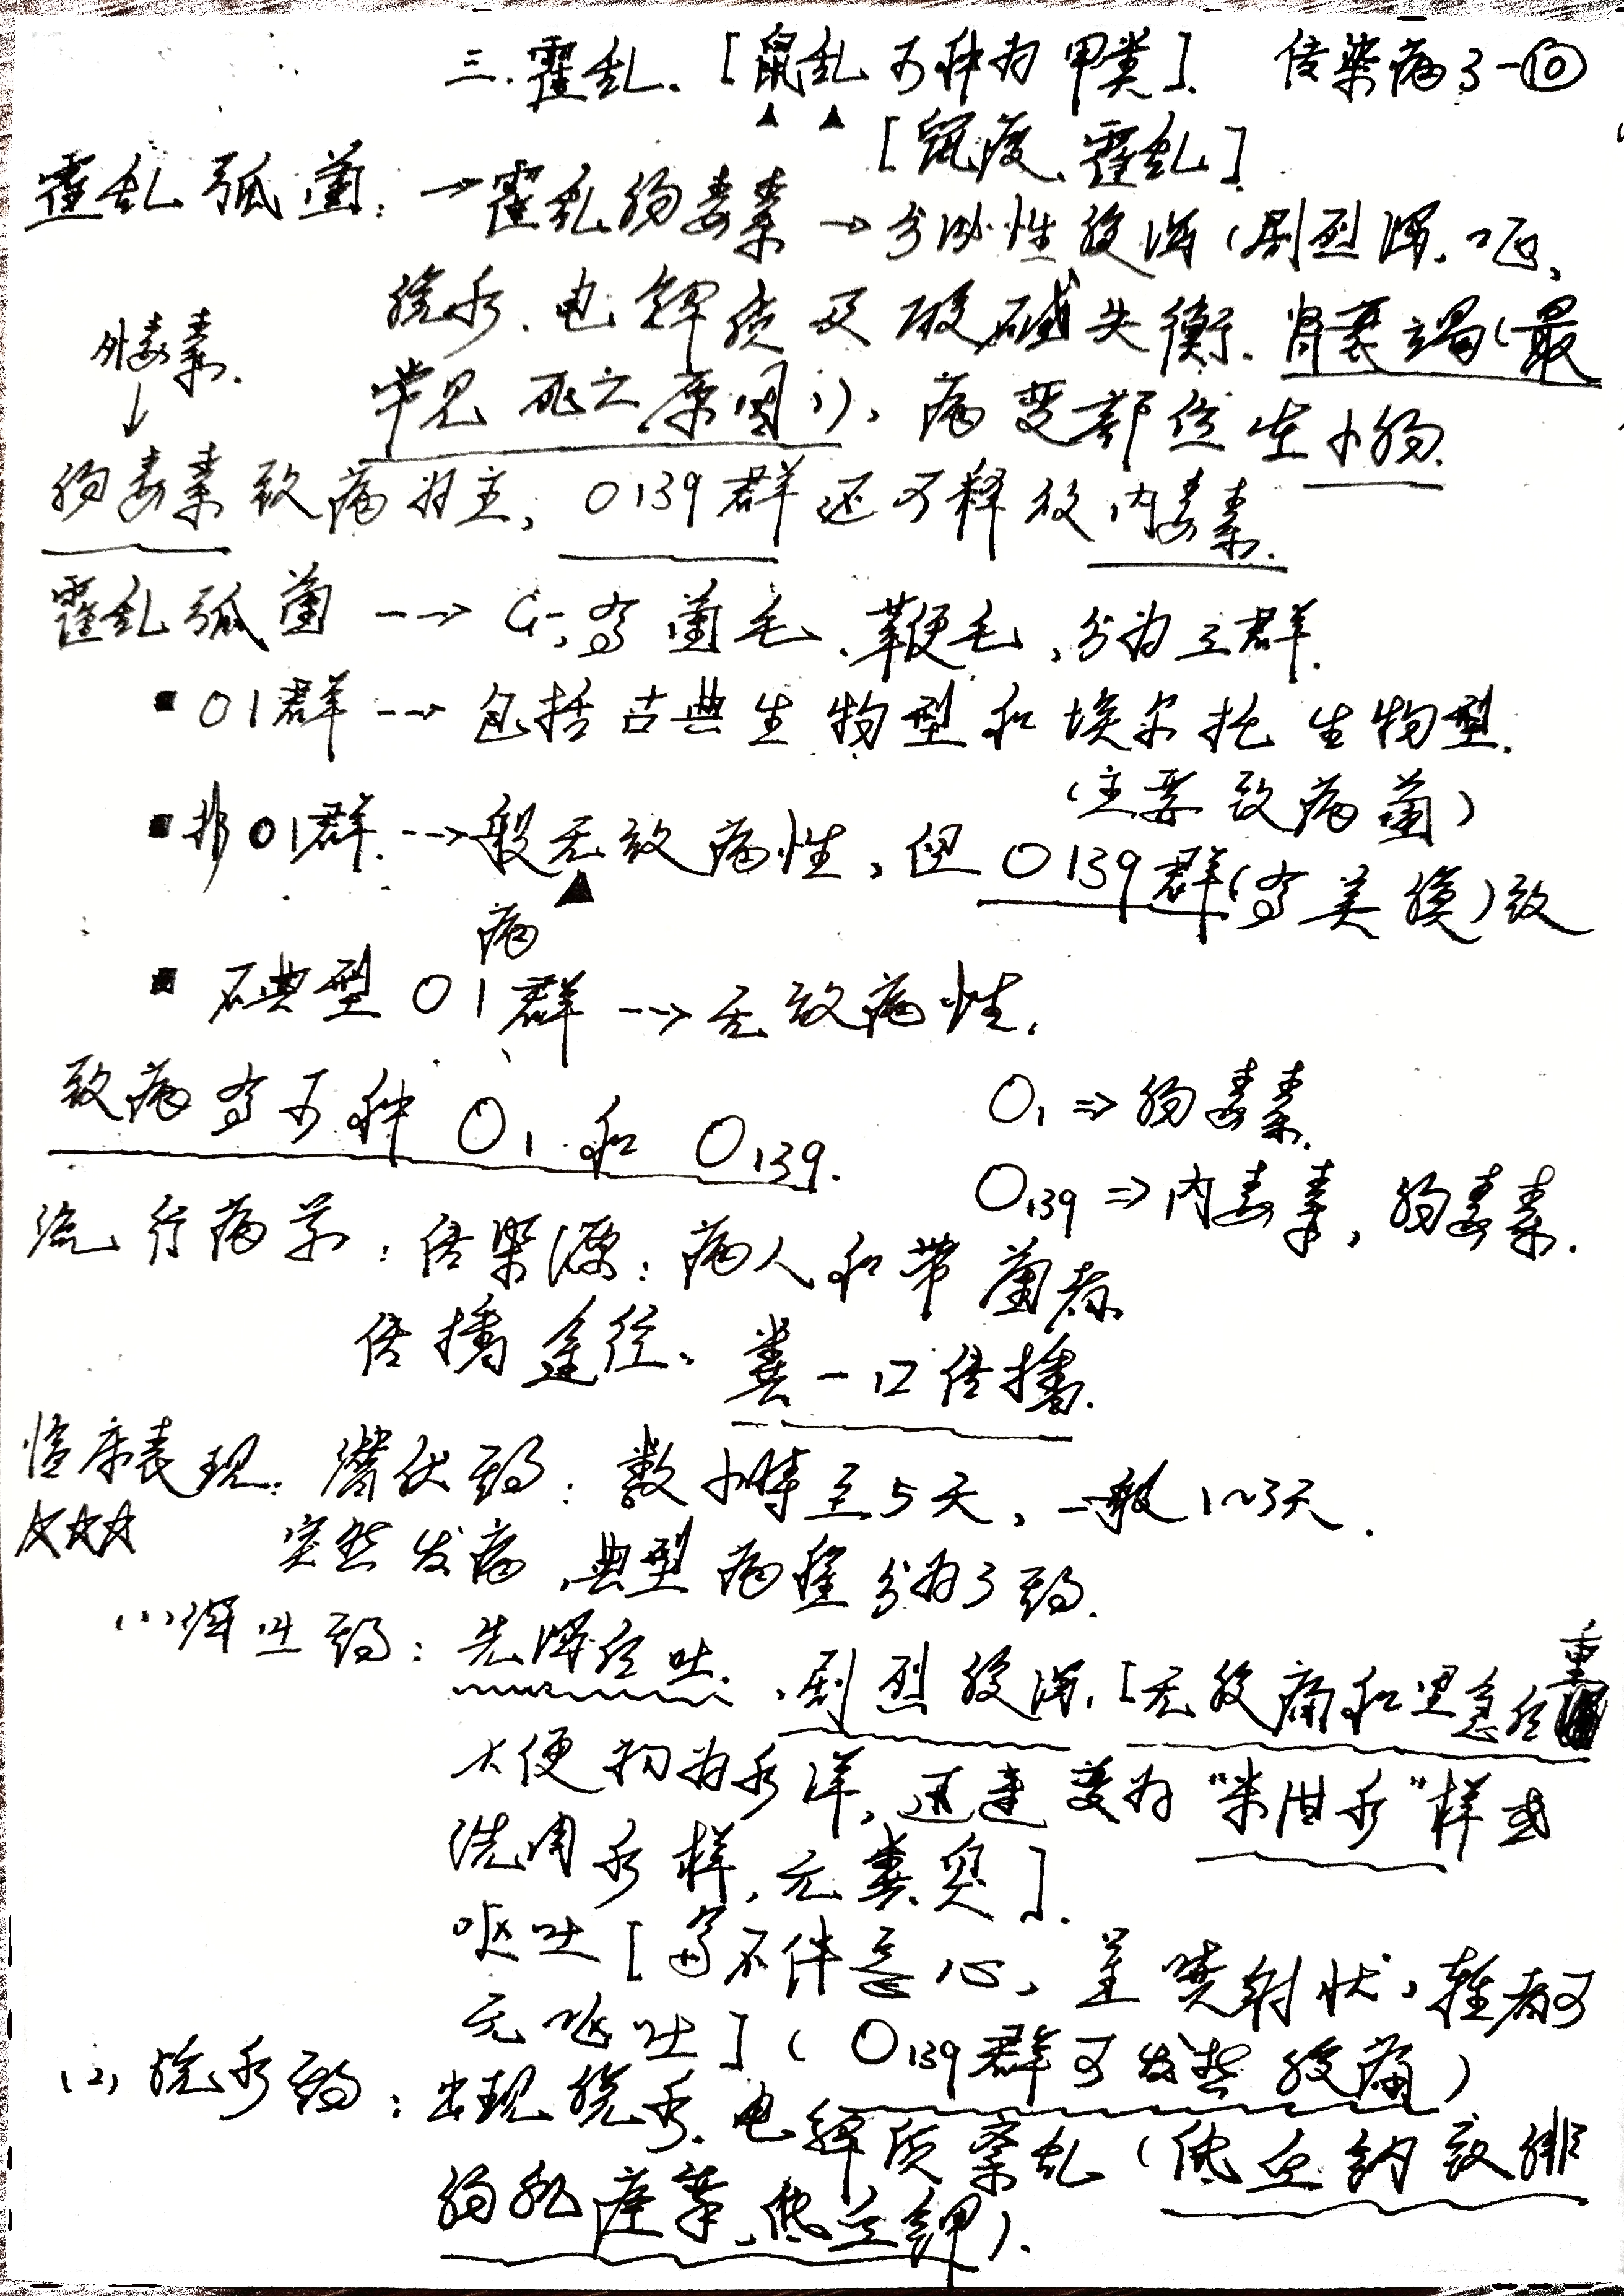 三.霍乱.[鼠乱 可称为甲类]. 传染病3-⑩
[鼠疫、霍乱].
霍乱弧菌:→霍乱肠毒素→分泌性腹泻(剧烈泻.呕、
脱水.电解质及酸碱失衡.肾衰竭(最
外毒素.
↓
常见死亡原因)),病变部位在小肠.
肠毒素致病为主,O139群还可释放内毒素.
霍乱弧菌 --→ G-,有菌毛、鞭毛,分为三群.
▪O1群--→包括古典生物型和埃尔托生物型.
(主要致病菌)
▪非O1群.--→一般无致病性,但O139群(有荚膜)致
病
▪不典型O1群--→无致病性.
致病有两种O1和O139.
O1⇒肠毒素.
O139⇒内毒素,肠毒素.
流行病学:传染源:病人和带菌者.
传播途径、粪-口传播.
临床表现:潜伏期:数小时至5天,一般1~3天.
☆☆☆ 突然发病,典型病程分为3期.
(1)泻吐期:先泻后吐.,剧烈腹泻.[无腹痛和里急后重
大便初为水样,迅速变为"米泔水"样或
洗肉水样,无粪臭].
呕吐[多不伴恶心,呈喷射状,轻者可
无呕吐](O139群可发热腹痛)
(2)脱水期:出现脱水.电解质紊乱(低血钠致腓
肠肌痉挛、低血钾).